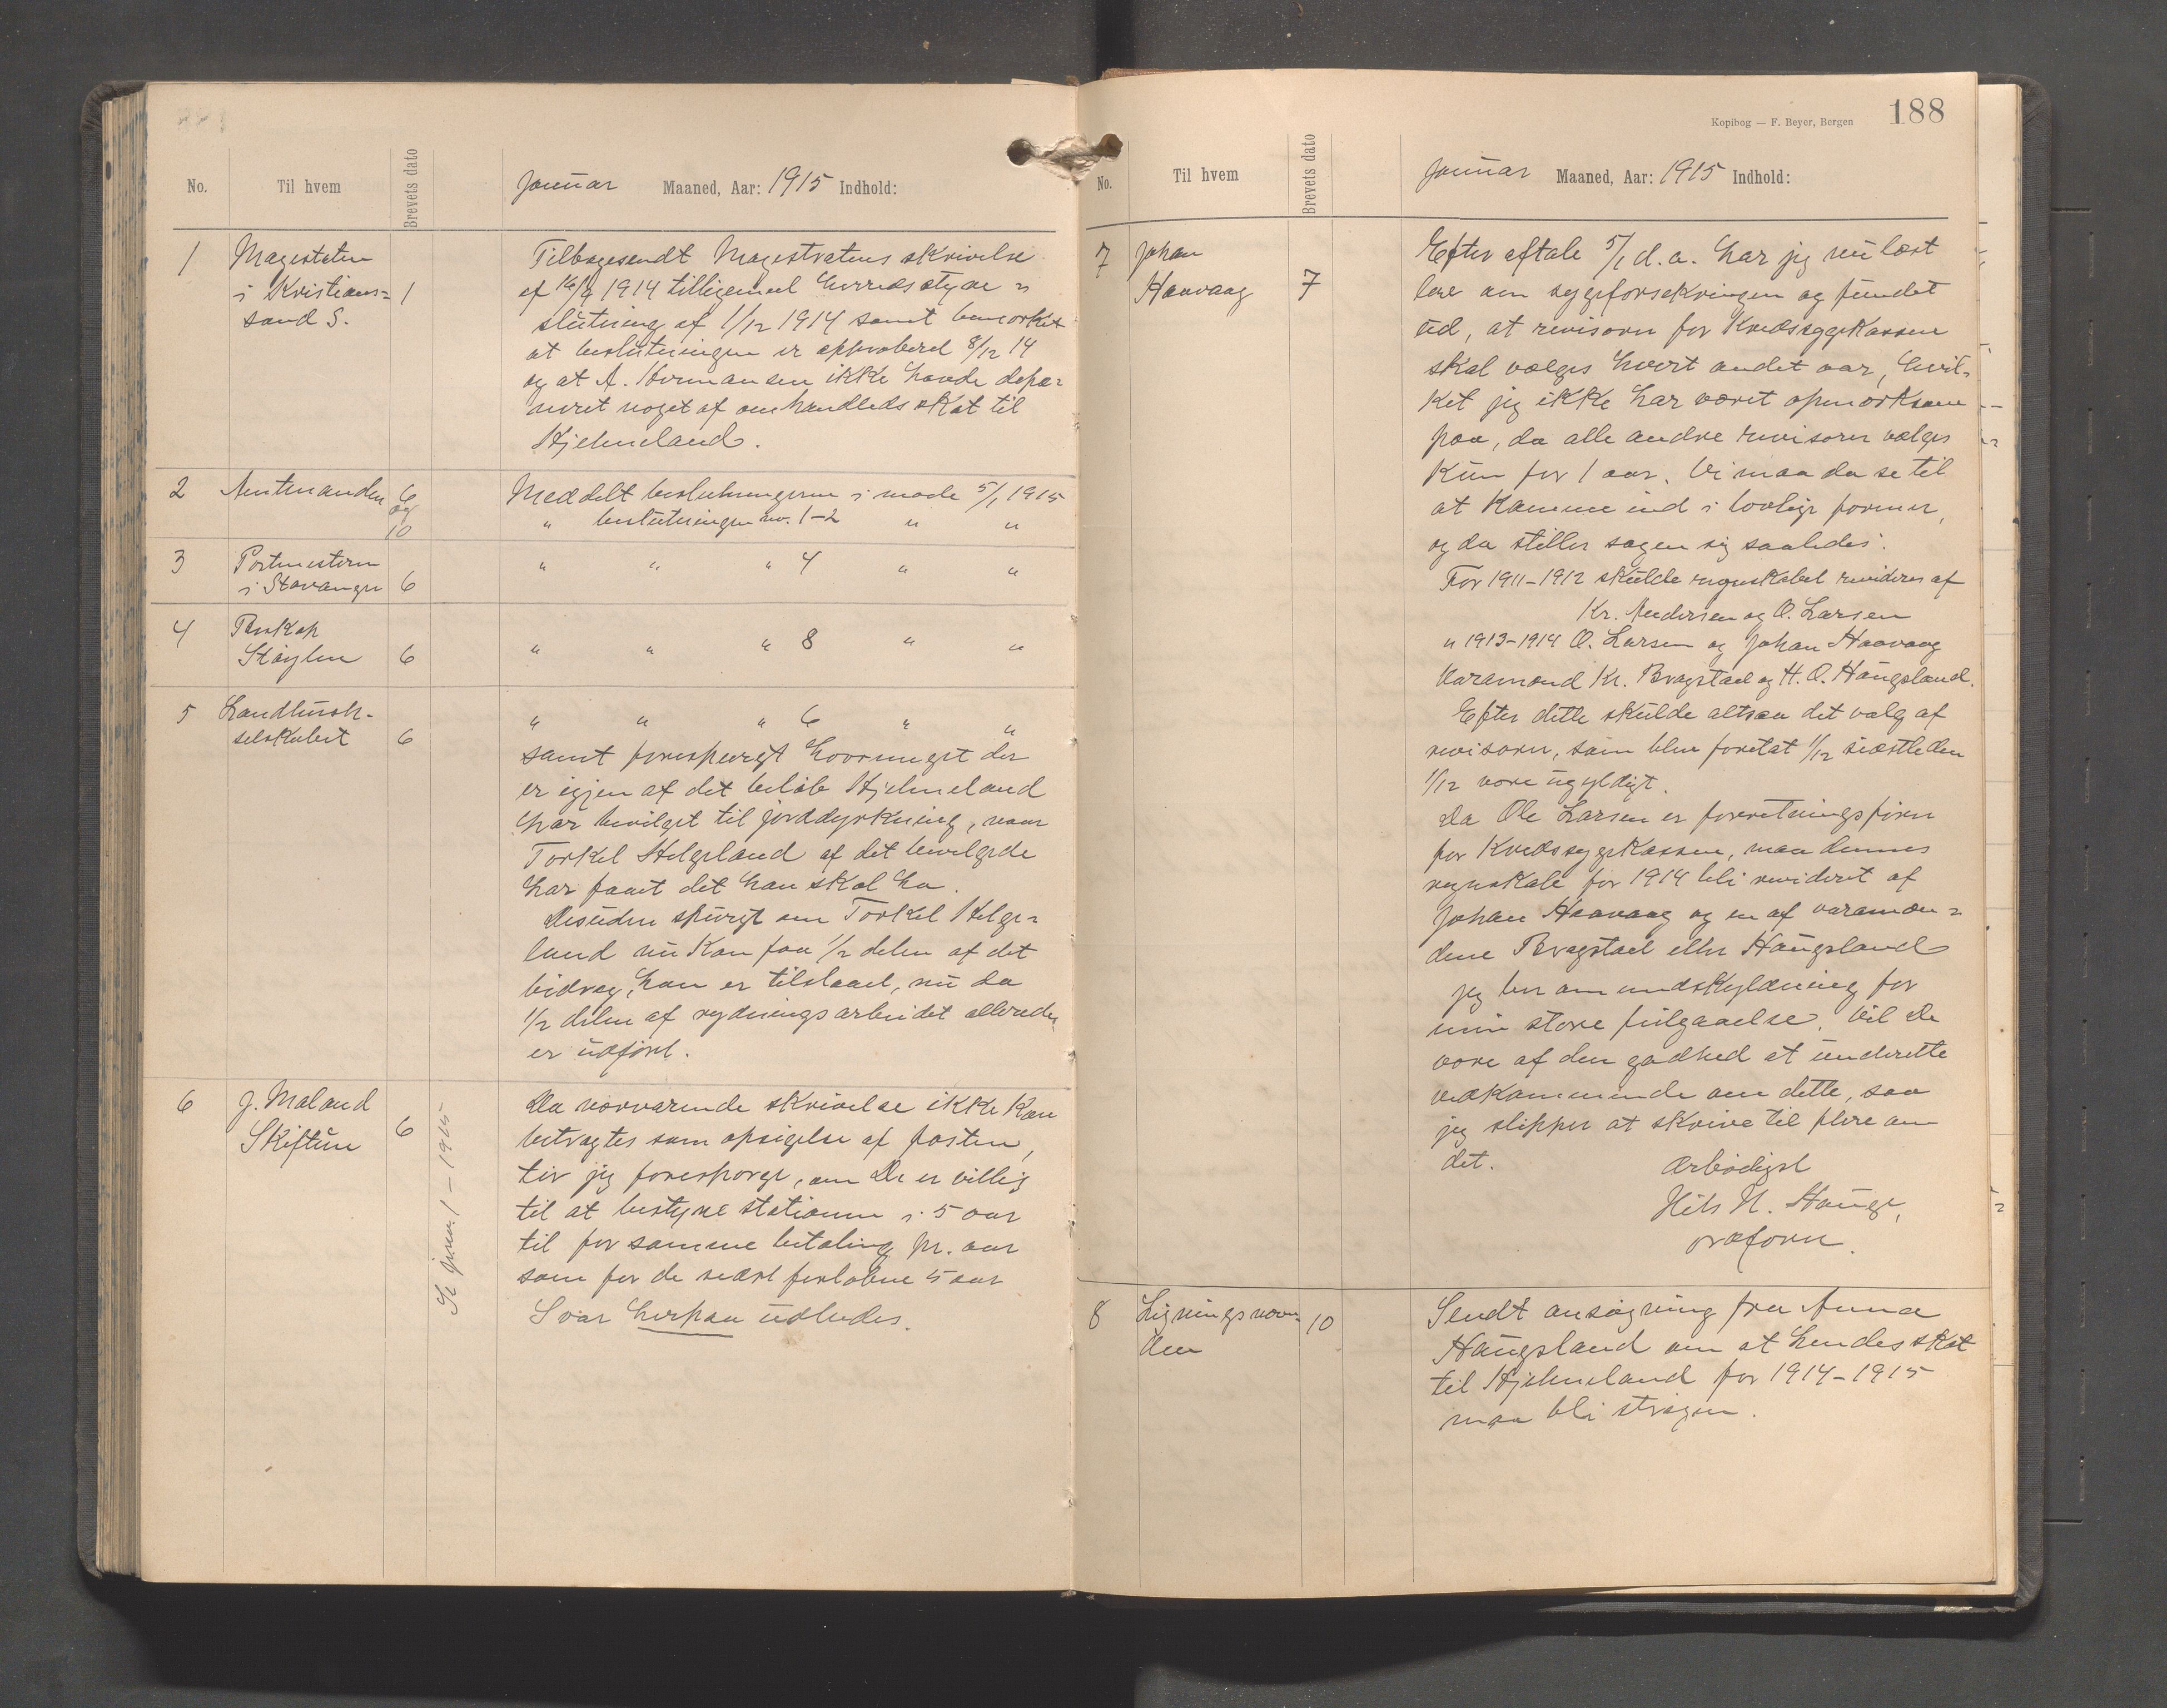 No. Til hvem Brevets dato Januar Maaned, Aar: 1915 Indhold:
1 Magestaten i Kristians= sand S. 1
Tilbagesendt Magestratens skrivelse
af 16/9 1914 tilligemed herredsstyre =
slutning af 1/12 1914 samt bemærket
at beslutningen er approberet 8/12 14
og at A. Hermansen ikke havde depo=
neret noget af omhandleds skat til
Hjelmeland.
2 Amtmanden 6 og 10
Meddelt beslutningerne i møde 5/1 1915
" beslutningen no. 1-2 " "
3 Postmesteren i Stavanger 6
" " " 4 " "
4 Biskop Støylen 6
" " " 8 " "
5 Landhush. selskabet 6
" " " 6 " "
samt forespurgt hvormeget der
er igjen af det beløb Hjelmeland
har bevilget til jorddyrkning, naar
Torkel Helgeland af det bevilgede
har faaet det han skal ha.
Desuden spurgt om Torkel Helge=
land nu kan faa 1/2 delen af det
bidrag, han er tilstaaet, nu da
1/2 delen af rydningsarbeidet allerede
er udført.
6 J. Maland Skiftun 6
Se jour. 1 - 1915
Da nærværende skrivelse ikke kan
betragtes som opsigelse af posten,
tør jeg forespørge, om De er villig
til at bestyre stationen i 5 aar
til for samme betaling pr. aar
som for de sidst forløbne 5 aar
Svar herpaa udbedes.
188
Kopibog — F. Beyer, Bergen
No. Til hvem Brevets dato Januar Maaned, Aar: 1915 Indhold:
7 Johan Haavaag 7
Efter aftale 5/1 d.a. har jeg nu læst
lov om sygeforsikringen og fundet
ud, at revisorer for Kredssygekassen
skal vælges hvert andet aar, hvil-
ket jeg ikke har været opmærksom
paa, da alle andre revisorer vælges
kun for 1 aar. Vi maa da se til
at komme ind i lovlige former,
og da stiller sagen sig saaledes:
For 1911-1912 skulde regnskabet revideres af
Kr. Andersen og O. Larsen
" 1913-1914 O. Larsen og Johan Haavaag
Varamænd Kr. Bragstad og H. O. Haugsland.
Efter dette skulde altsaa det valg af
revisorer, som blev foretat 1/12 sidstleden
1/12 være ugyldigt.
Da Ole Larsen er forretningsfører
for Kredssygekassen, maa dennes
regnskab for 1914 bli revideret af
Johan Haavaag og en af varamæn=
dene Bragstad eller Haugsland
Jeg ber om undskyldning for
min store feilgaaelse. Vil De
være af den godhed at underrette
vedkommende om dette, saa
jeg slipper at skrive til flere om
det.
Ærbødigst
Nils N. Hauge,
ordfører.
8 Ligningsnævn= den 10
Sendt ansøgning fra Anna
Haugsland om at hendes skat
til Hjelmeland for 1914-1915
maa bli strøgen.